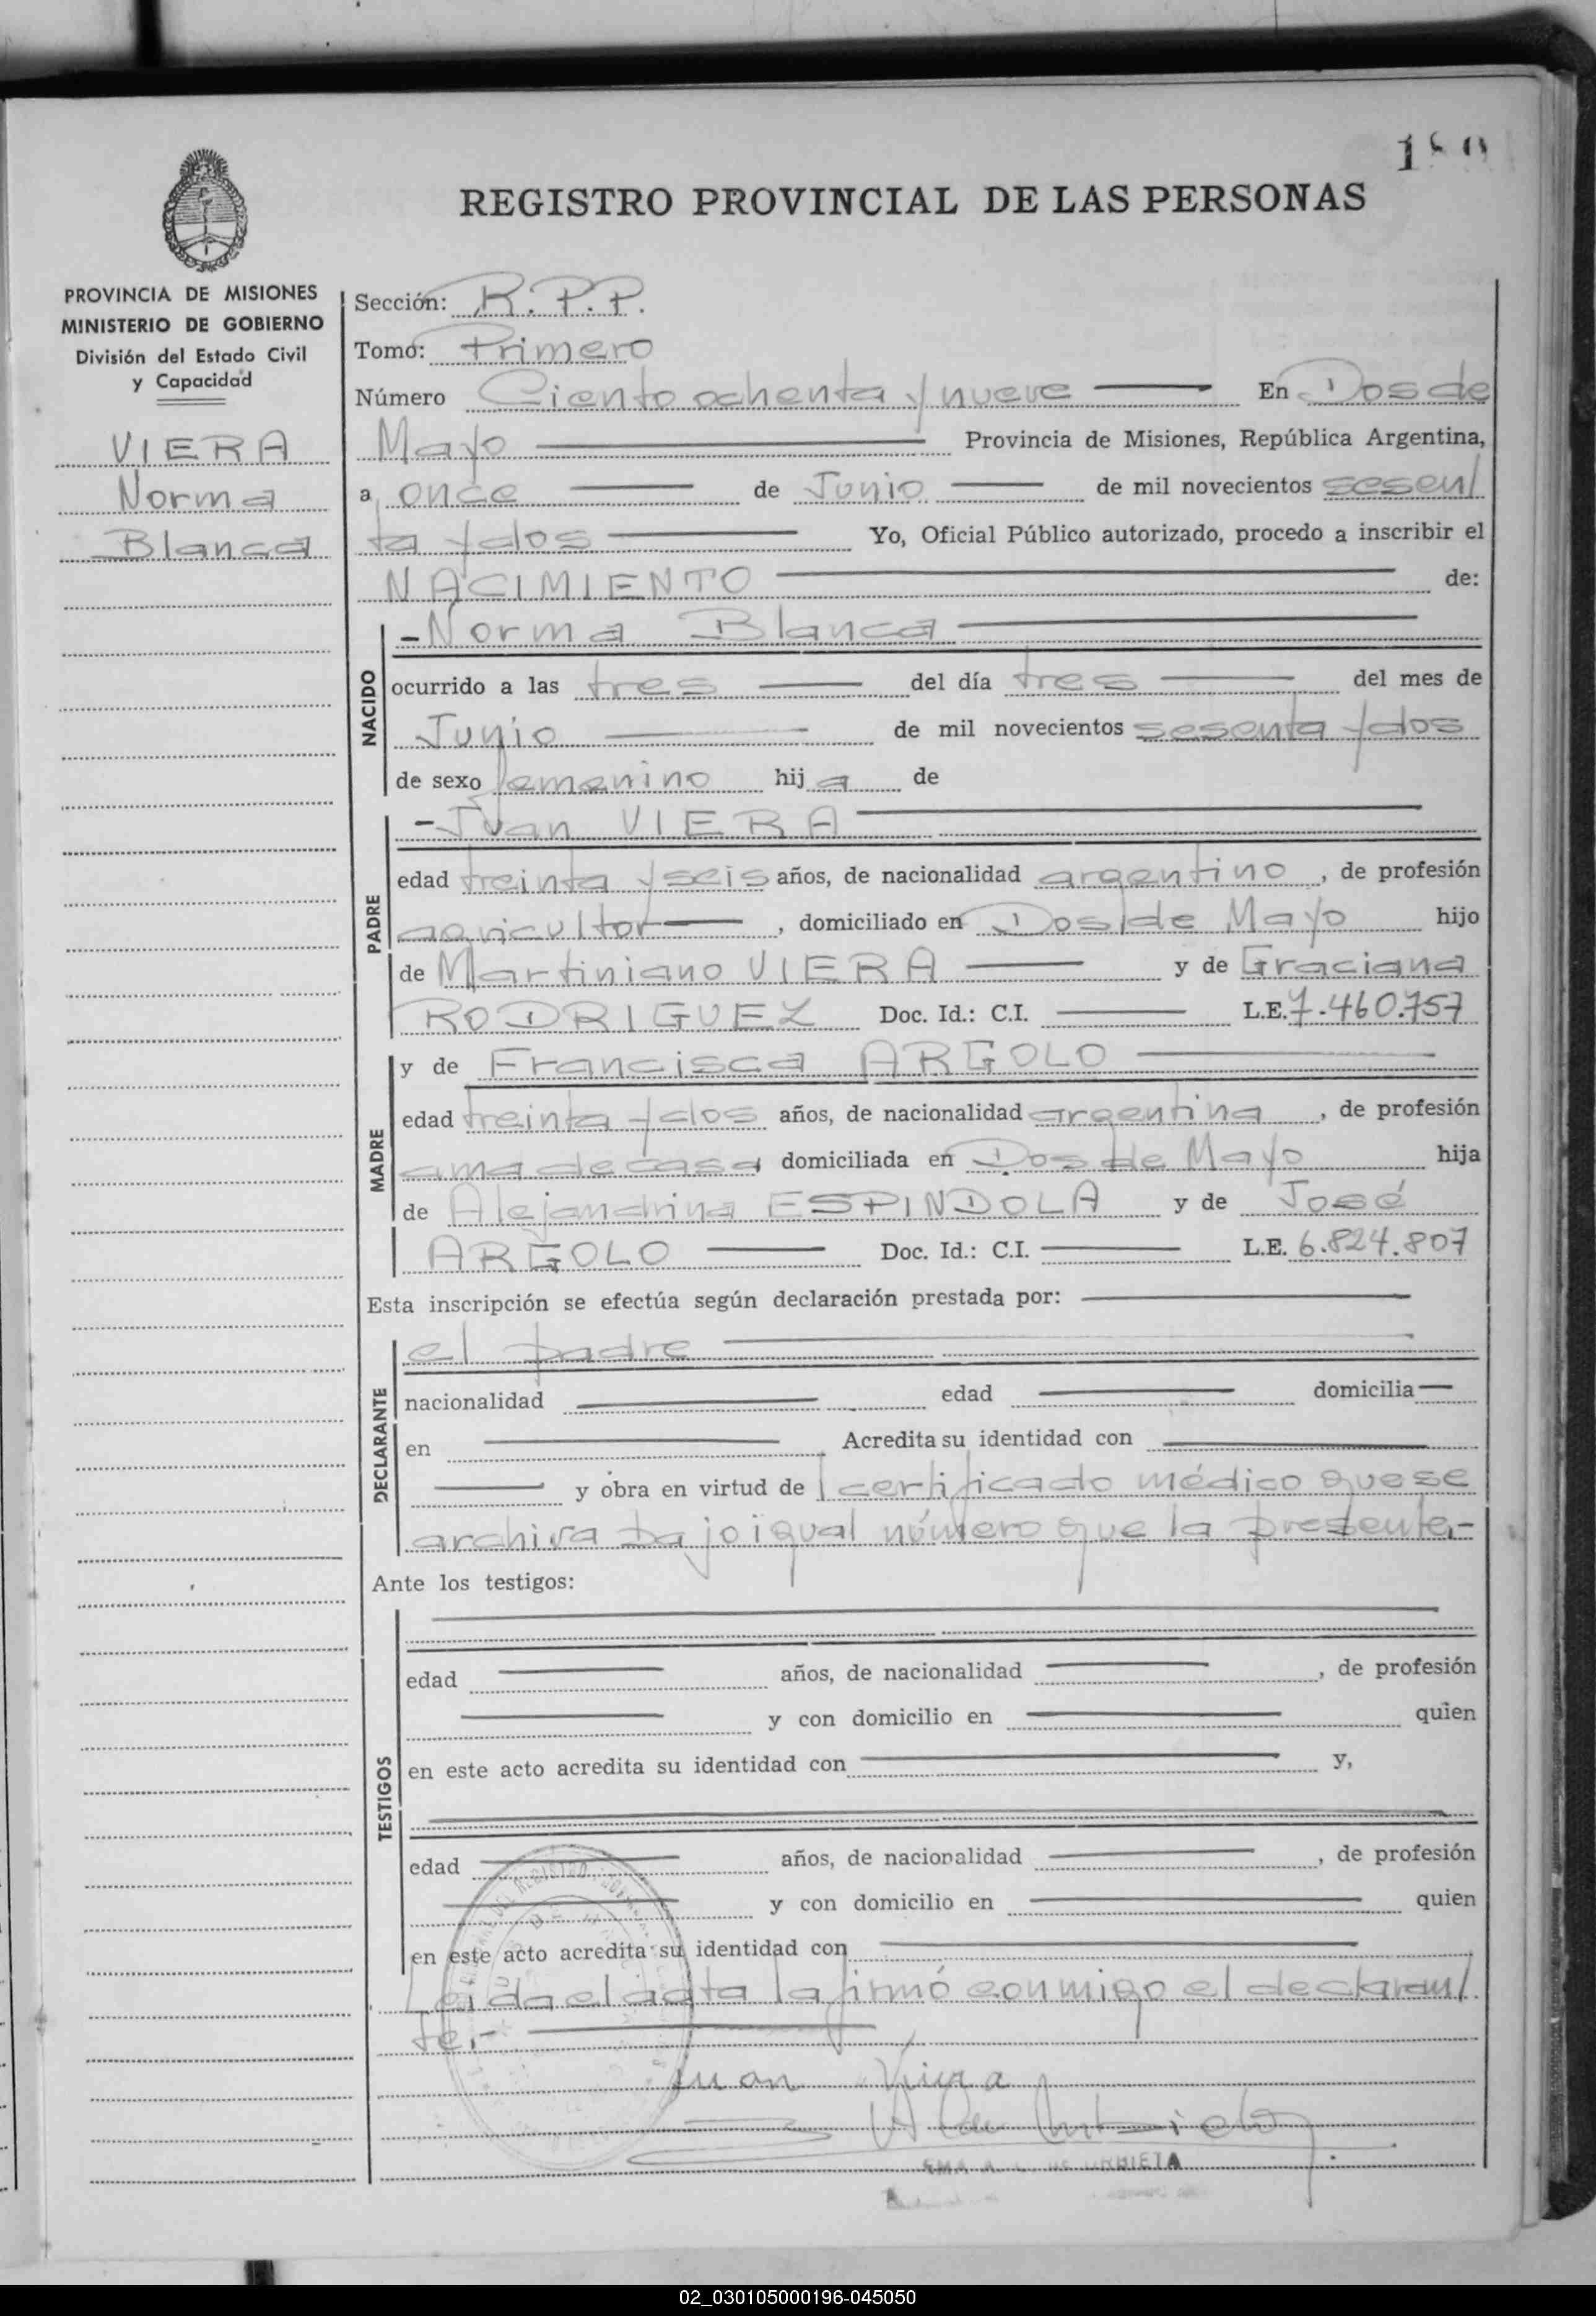 REGISTRO PROVINCIAL DE LAS PERSONAS
PROVINCIA DE MISIONES
MINISTERIO DE GOBIERNO
División del Estado Civil
y Capacidad
VIERA
Norma
Blanca
Sección: R.P.P.
Tomo: Primero
Número Ciento ochenta y nueve En Dos de
Mayo Provincia de Misiones, República Argentina,
a once de Junio de mil novecientos sesen/
ta y dos Yo, Oficial Público autorizado, procedo a inscribir el
NACIMIENTO de:
NACIDO
-Norma Blanca
ocurrido a las tres del día tres del mes de
Junio de mil novecientos sesenta y dos
de sexo femenino hija de
PADRE
-Juan VIERA
edad treinta y seis años, de nacionalidad argentino, de profesión
agricultor, domiciliado en Dos de Mayo hijo
de Martiniano VIERA y de Graciana
RODRIGUEZ Doc. Id.: C.I. L.E. 7.460.757
MADRE
y de Francisca ARGOLO
edad treinta y dos años, de nacionalidad argentina, de profesión
ama de casa domiciliada en Dos de Mayo hija
de Alejandrina ESPINDOLA y de José
ARGOLO Doc. Id.: C.I. L.E. 6.824.807
Esta inscripción se efectúa según declaración prestada por:
DECLARANTE
el padre
nacionalidad edad domicilia
en Acredita su identidad con
y obra en virtud de l certificado médico que se
archiva bajo igual número que la presente.-
Ante los testigos:
TESTIGOS
edad años, de nacionalidad , de profesión
y con domicilio en quien
en este acto acredita su identidad con y,
edad años, de nacionalidad , de profesión
y con domicilio en quien
en este acto acredita su identidad con
Leida el acta la firmó conmigo el declaran/
te.-
Juan Viera
URBIETA
02_030105000196-045050